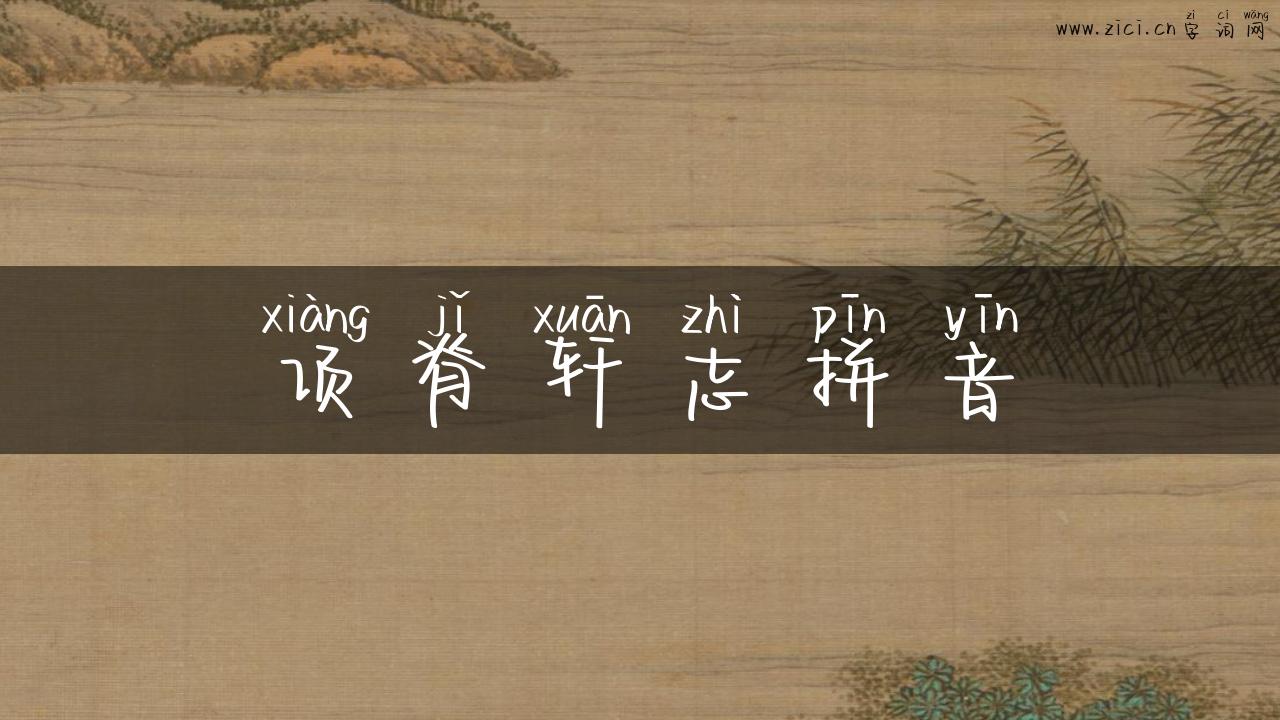 zì cí wǎng
www.zici.cn 字词网
xiàng jǐ xuān zhì pīn yīn
项脊轩志拼音